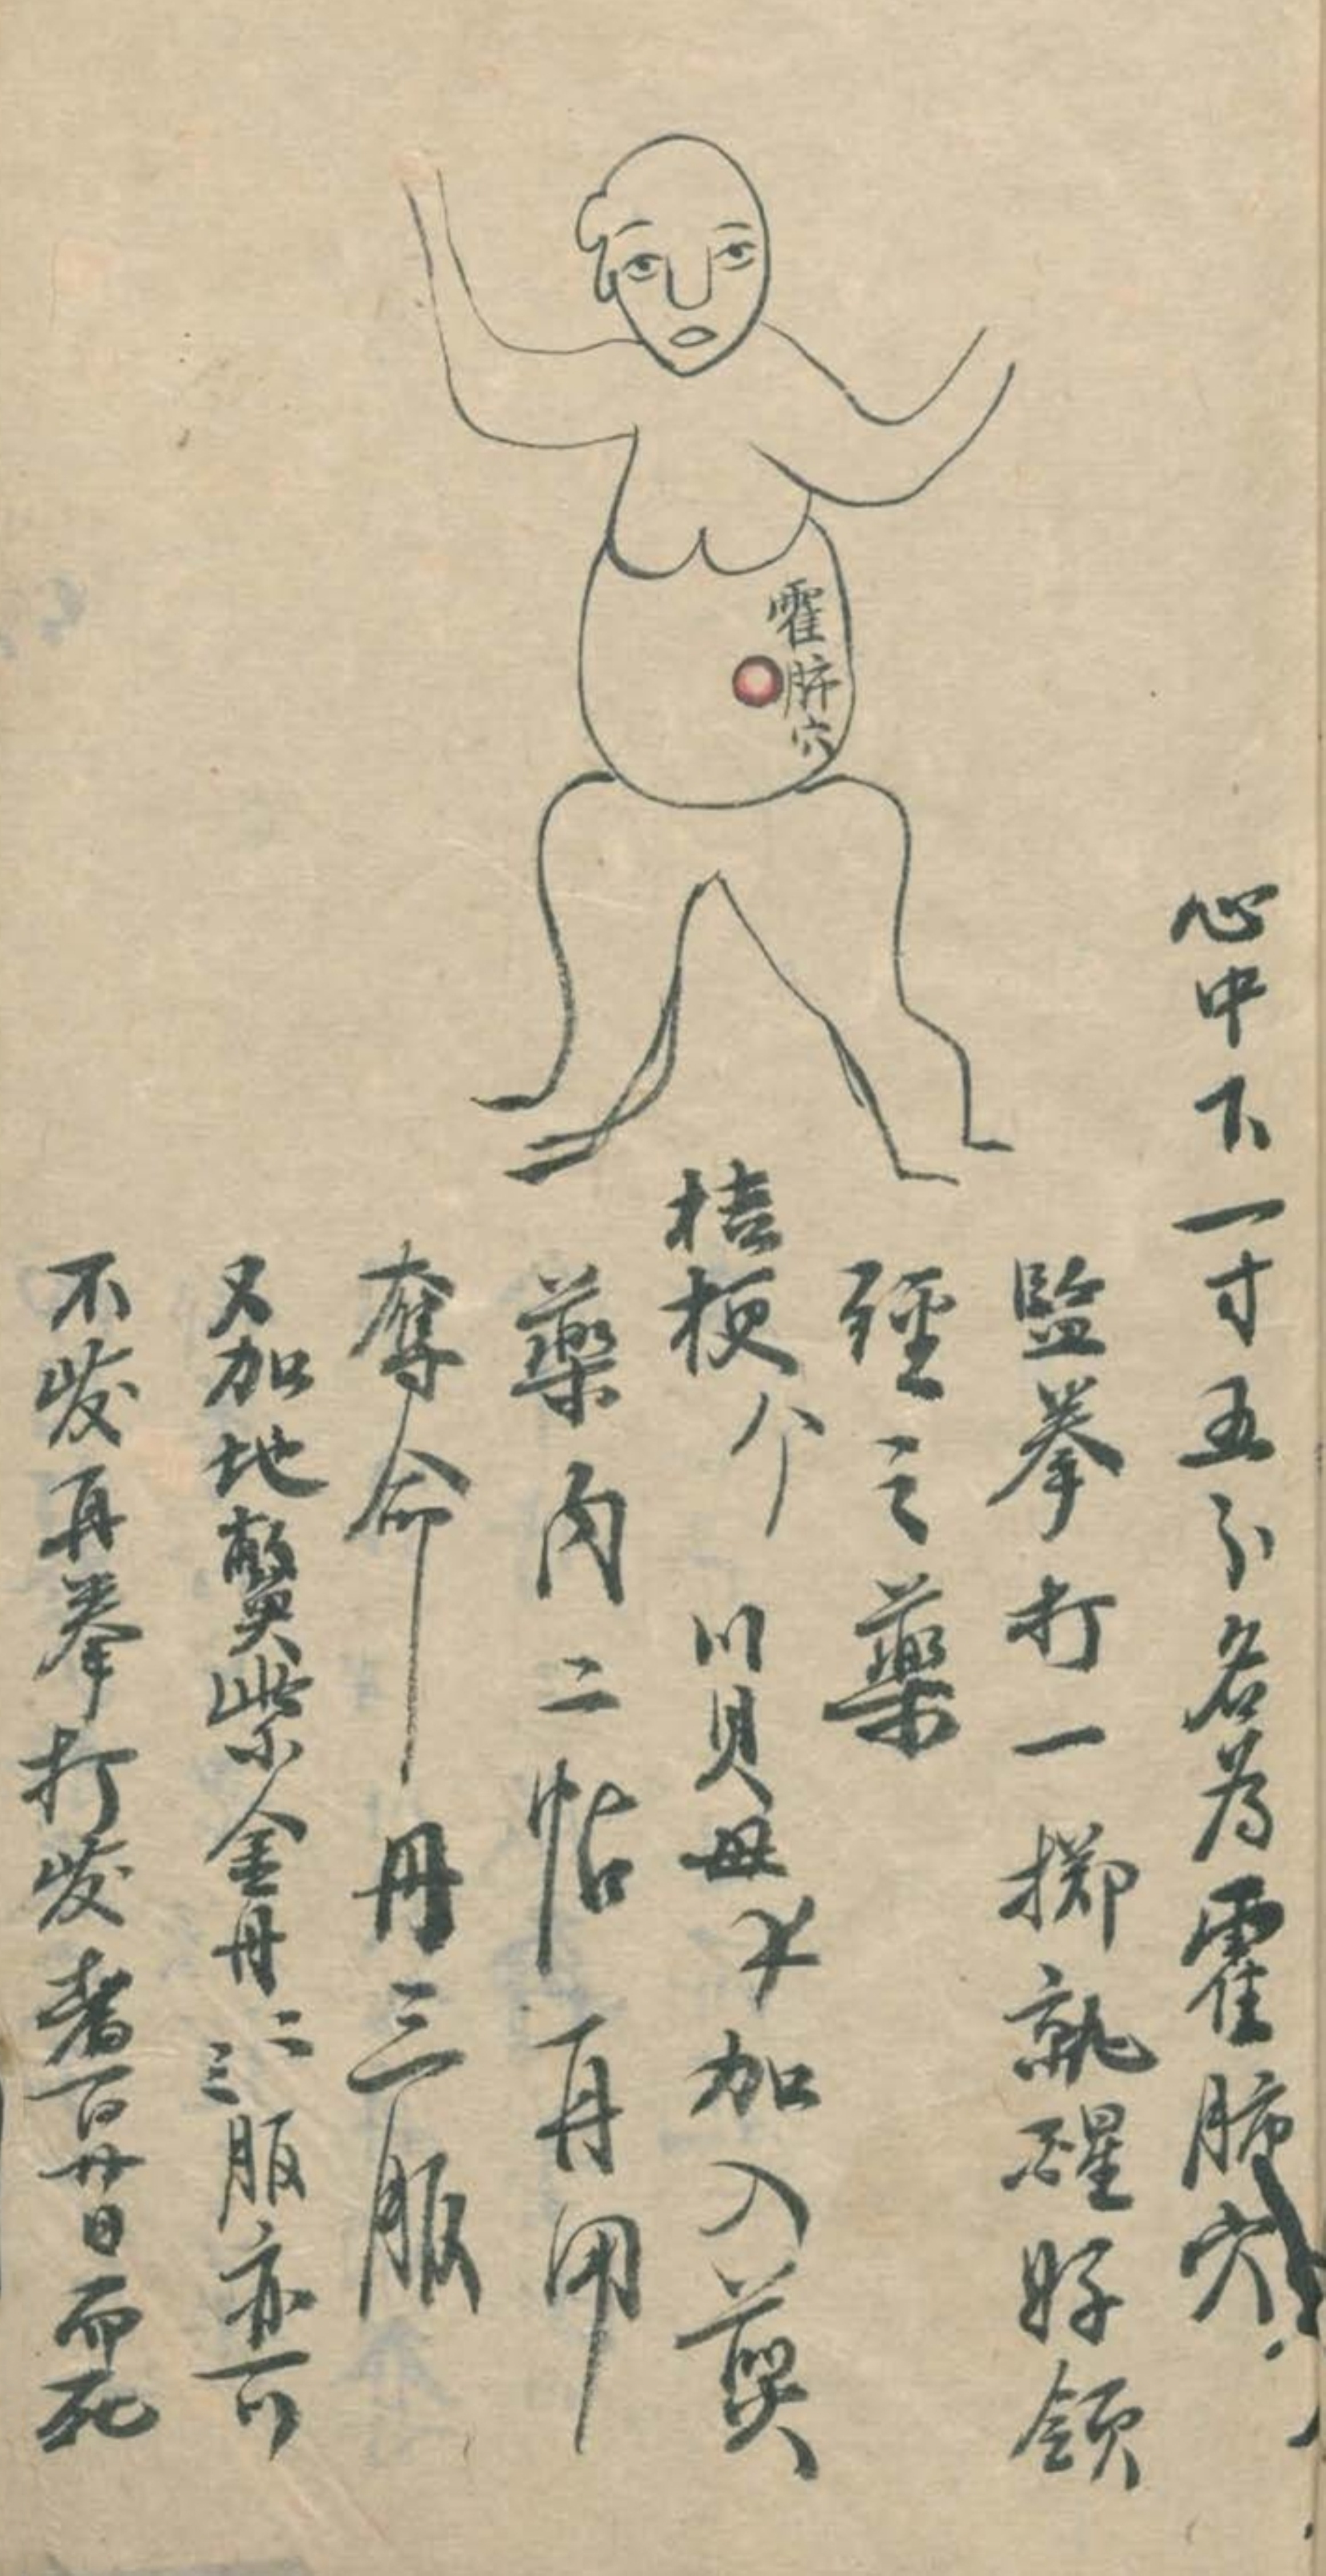 霍肺穴
心中下一寸五分名為霍肺穴
監拳打一掷就醒好領
經之藥
桔梗 川貝母 加入
藥內二帖再用
奪命丹三服
又加地鱉紫金丹二三服亦可
不發再拳打發者百廿日而死